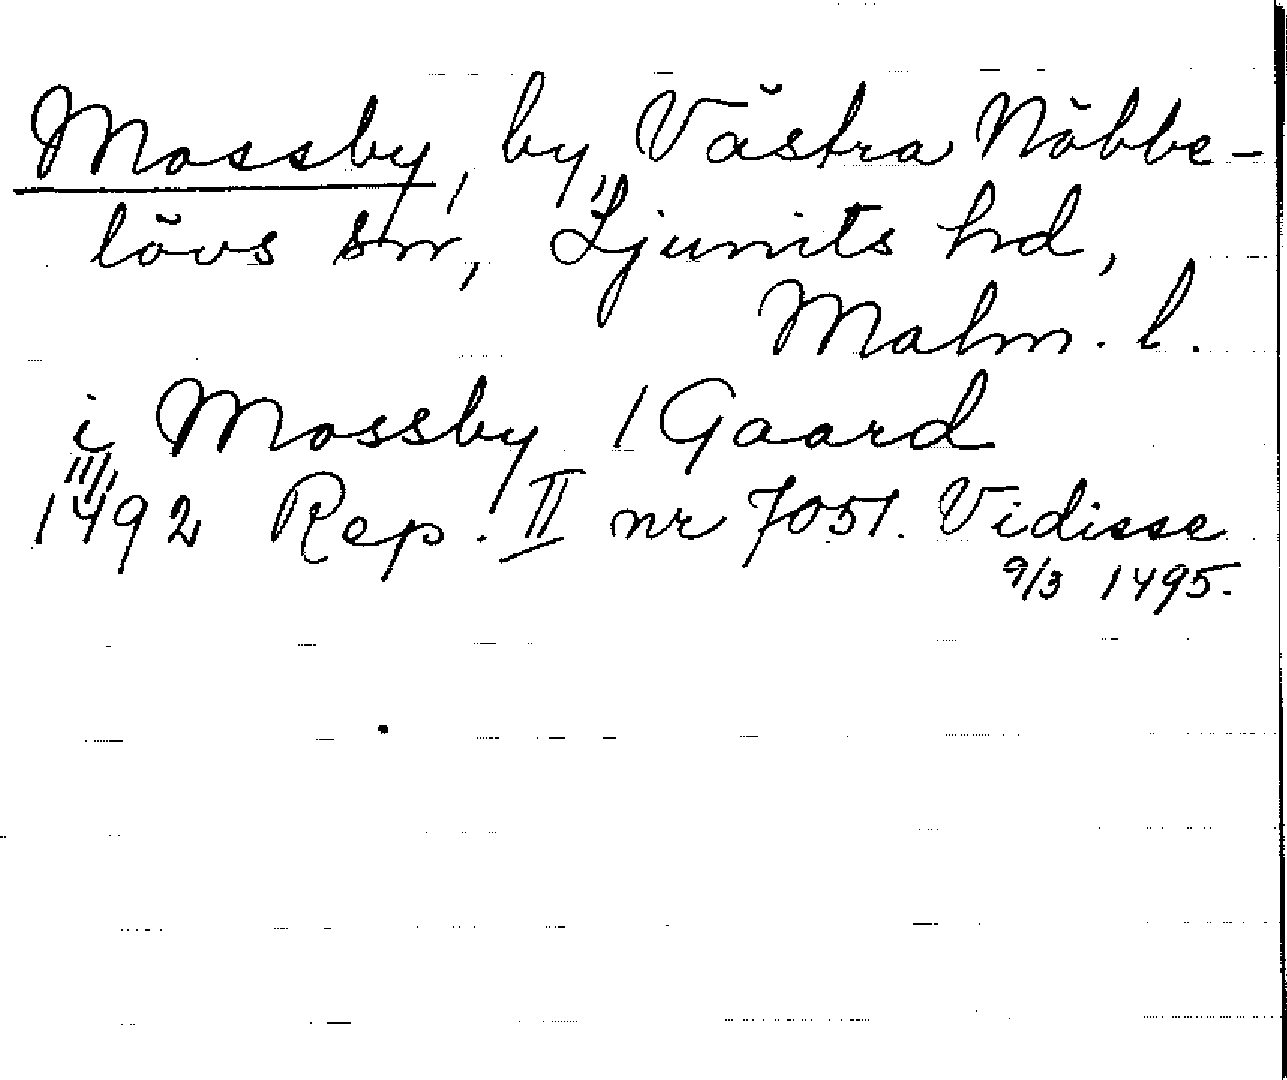 Mossby, by, Västra Nöbbe-
lövs sn, Ljunits hd,
Malm. l.
i Mossby 1 Gaard
11/11
1492 Rep. II nr 7051. Vidisse
9/3 1495.